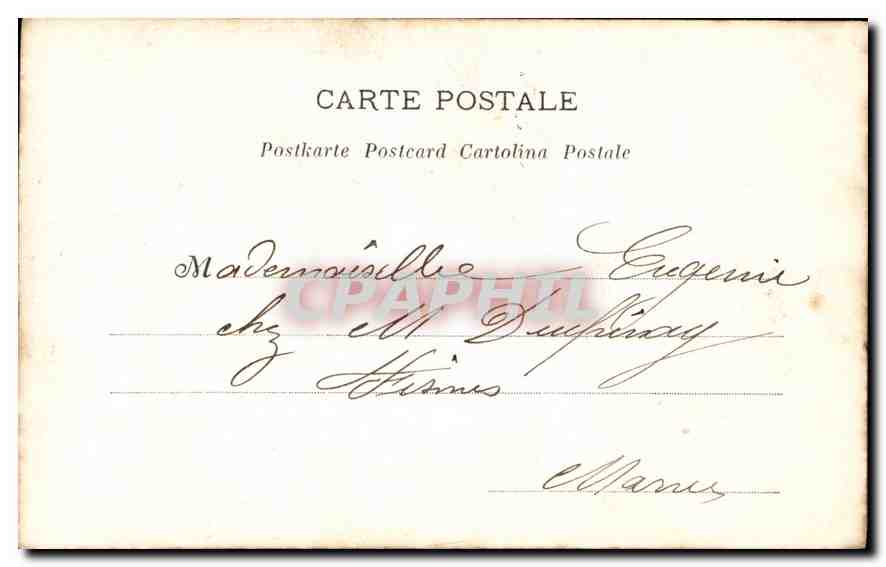 CARTE POSTALE
Postkarte Postcard Cartolina Postale
Mademoiselle Eugenie
CPAPHIL
chez M
Fismes
Marne